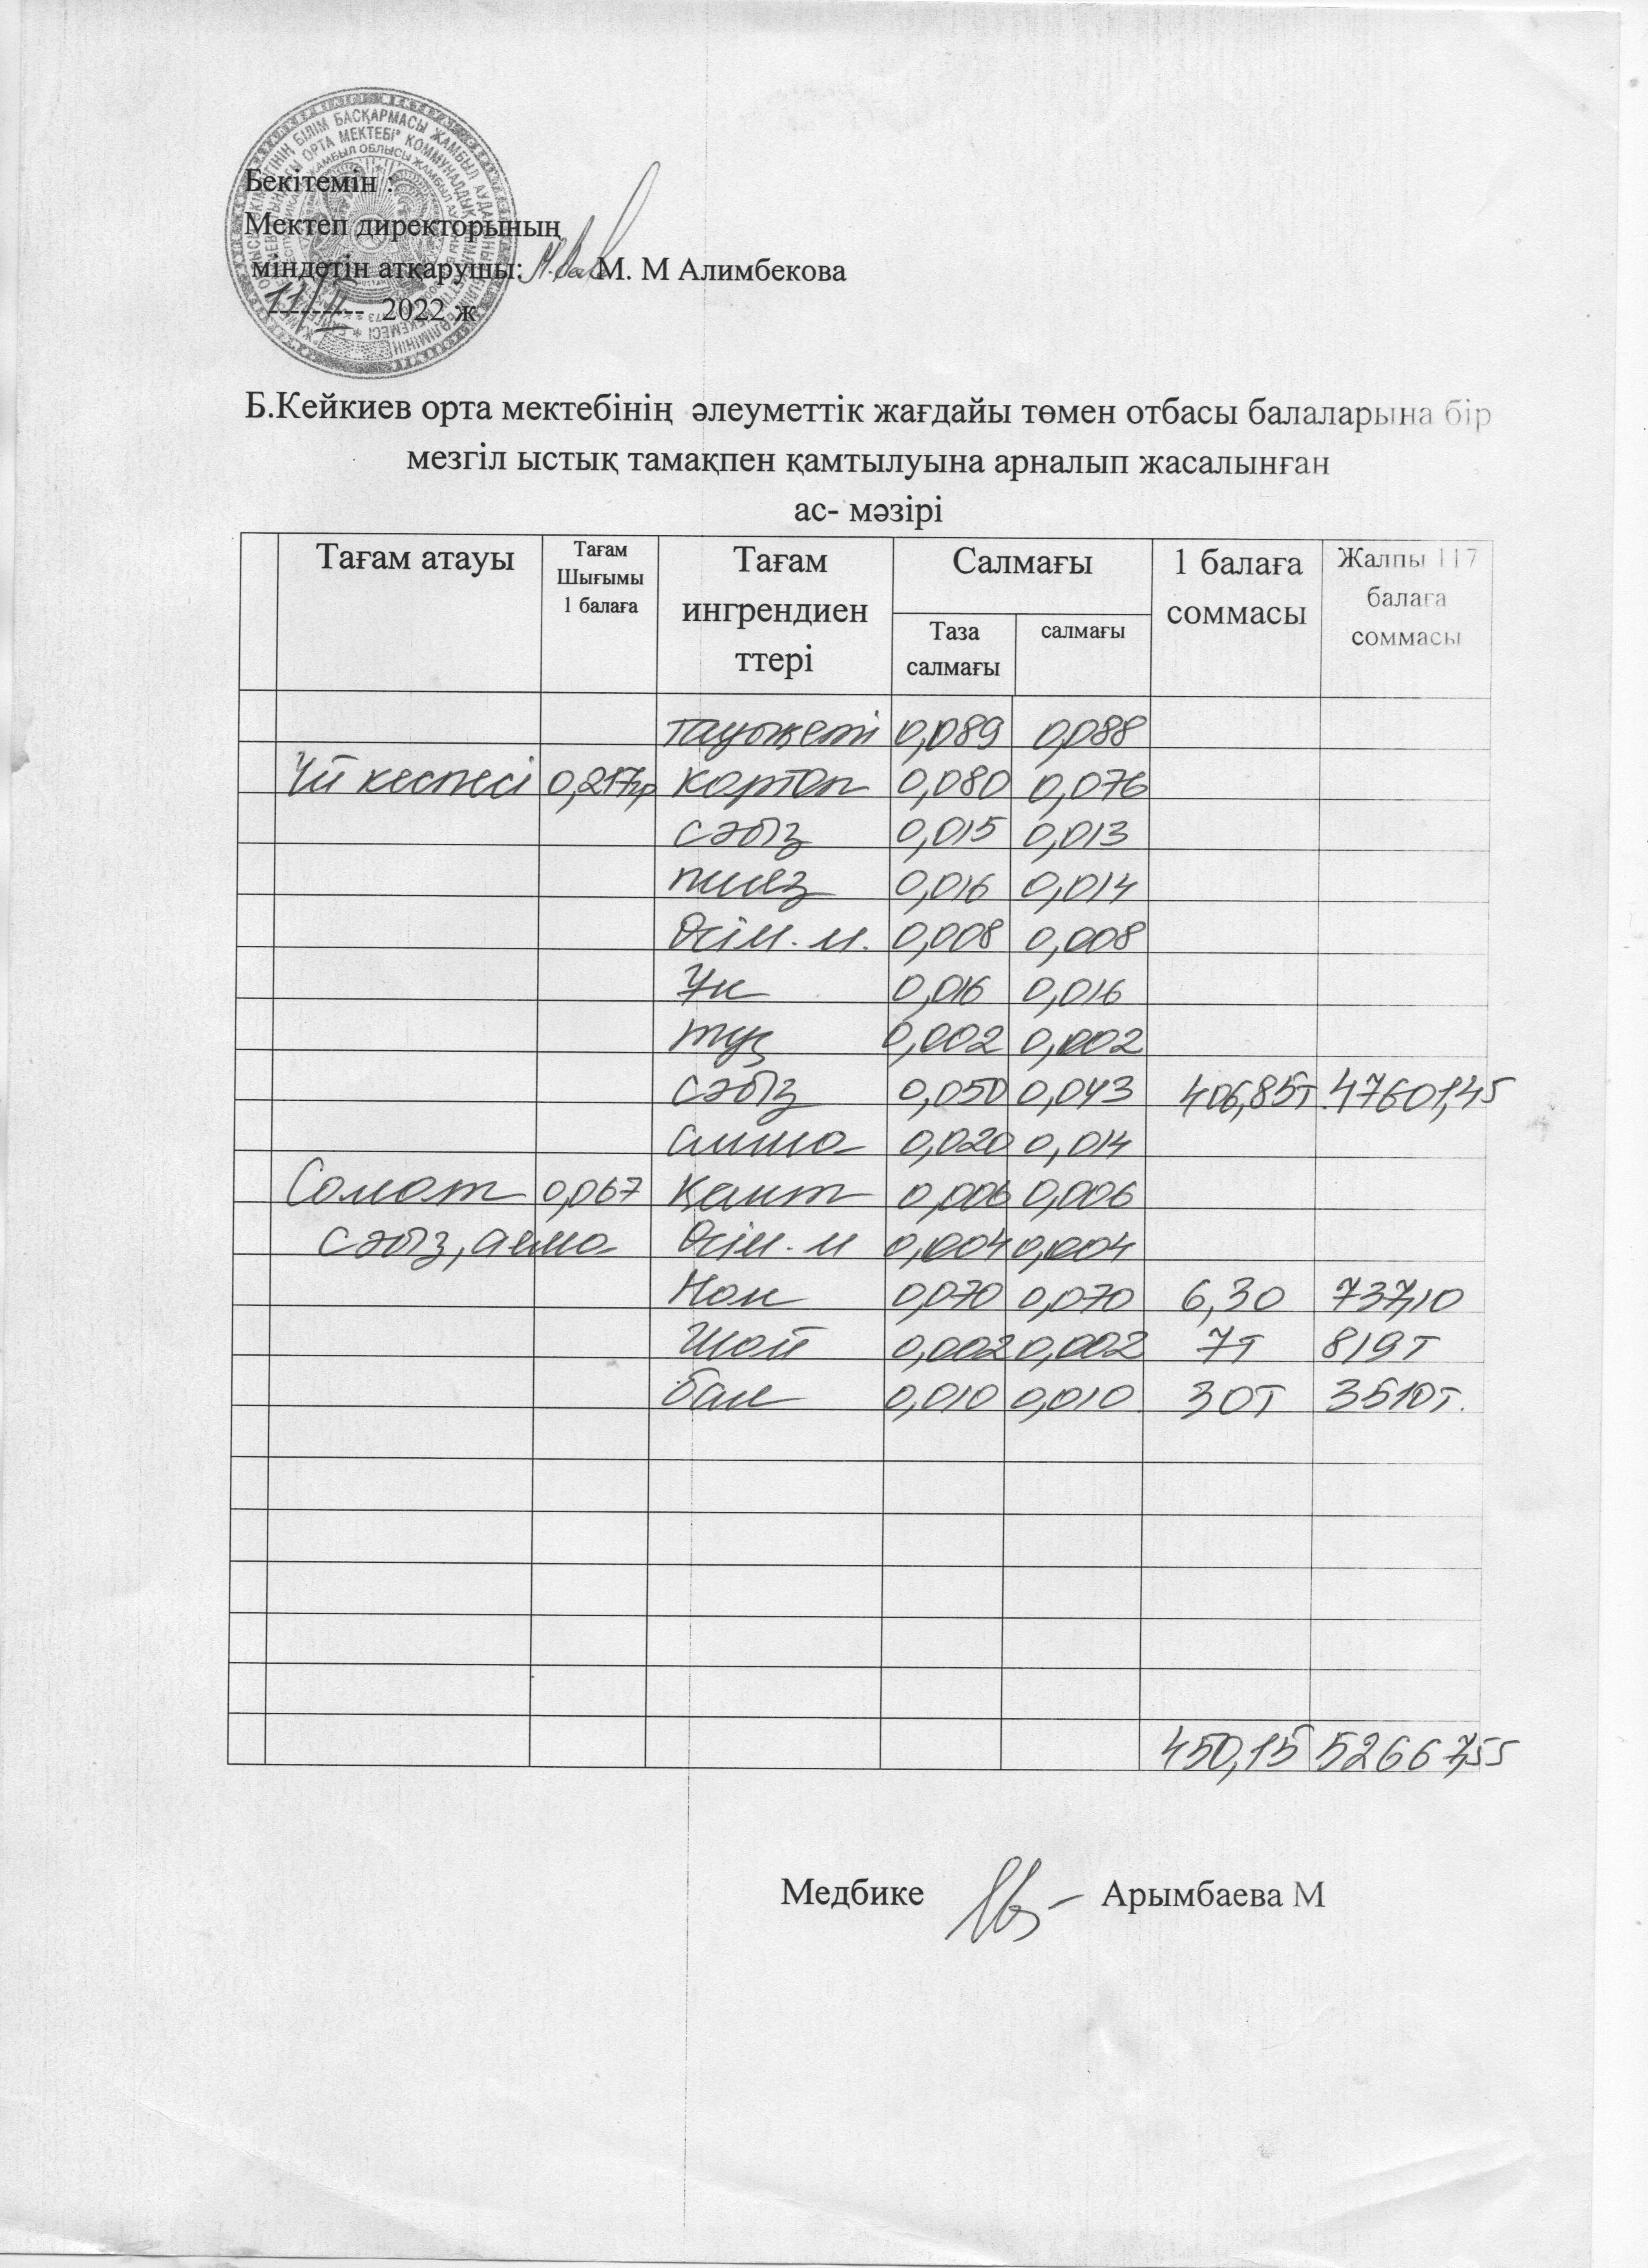 Бекітемін :
Мектеп директорының
міндетін атқарушы: М. М Алимбекова
11/ 2022 ж
Б.Кейкиев орта мектебінің әлеуметтік жағдайы төмен отбасы балаларына бір
мезгіл ыстық тамақпен қамтылуына арналып жасалынған
ас- мәзірі
Тағам атауы Тағам Шығымы 1 балаға Тағам ингрендиен ттері Салмағы Таза салмағы салмағы 1 балаға соммасы Жалпы 117 балаға соммасы
тауық еті 0,089 0,088
Үй кеспесі 0,217гр картоп 0,080 0,076
сәбіз 0,015 0,013
пияз 0,016 0,014
Өсім. м. 0,008 0,008
Ұн 0,016 0,016
тұз 0,002 0,002
сәбіз 0,050 0,043 406,85т 47601,45
алма 0,020 0,014
Салат 0,067 Қант 0,006 0,006
сәбіз, алма Өсім. м 0,004 0,004
Нан 0,070 0,070 6,30 737,10
Шай 0,002 0,002 7т 819т
бал 0,010 0,010 30т 3510т.
450,15 52667,55
Медбике Арымбаева М